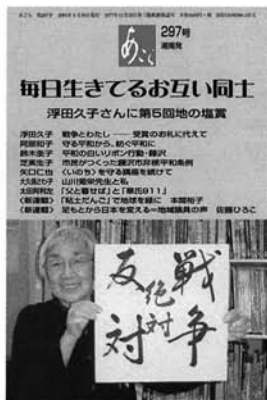 あごら
297号
湘南発
毎日生きてるお互い同士
浮田久子さんに第5回地の塩賞
浮田久子 戦争とわたし――受賞のお礼に代えて
阿部知子 守る平和から、紡ぐ平和に
鈴木圭子 平和の白いリボン行動・藤沢
芝美生子 市民がつくった藤沢市非核平和条例
矢口仁也 〈いのち〉を守る講座を続けて
山川菊栄先生と私
「父と暮せば」と「華氏911」
〈新連載〉「粘土だんご」で地球を緑に 本間裕子
〈新連載〉足もとから日本を変える=地域議員の声 佐藤ひろこ
戦争
絶対
反対